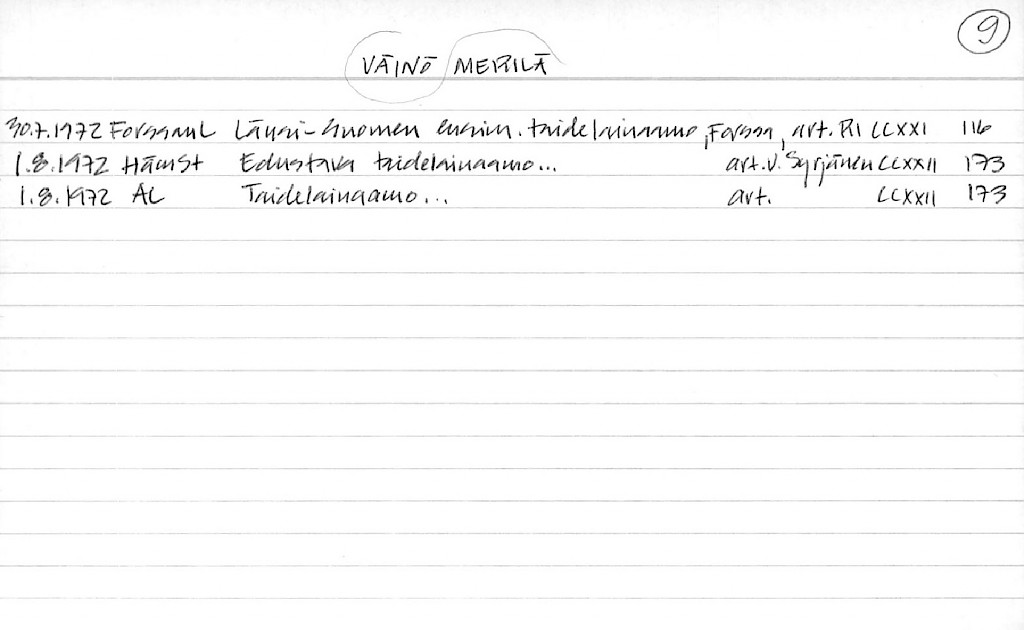 9
VÄINÖ MERILÄ
30.7.1972 ForssanL Länsi-Suomen ensim. taidelainaamo, Forssa, art. RI CCXXI 116
1.8.1972 HämSt Edustava taidelainaamo... art. V. Syrjänen CCXXII 173
1.8.1972 AL Taidelainaamo... art. CCXXII 173